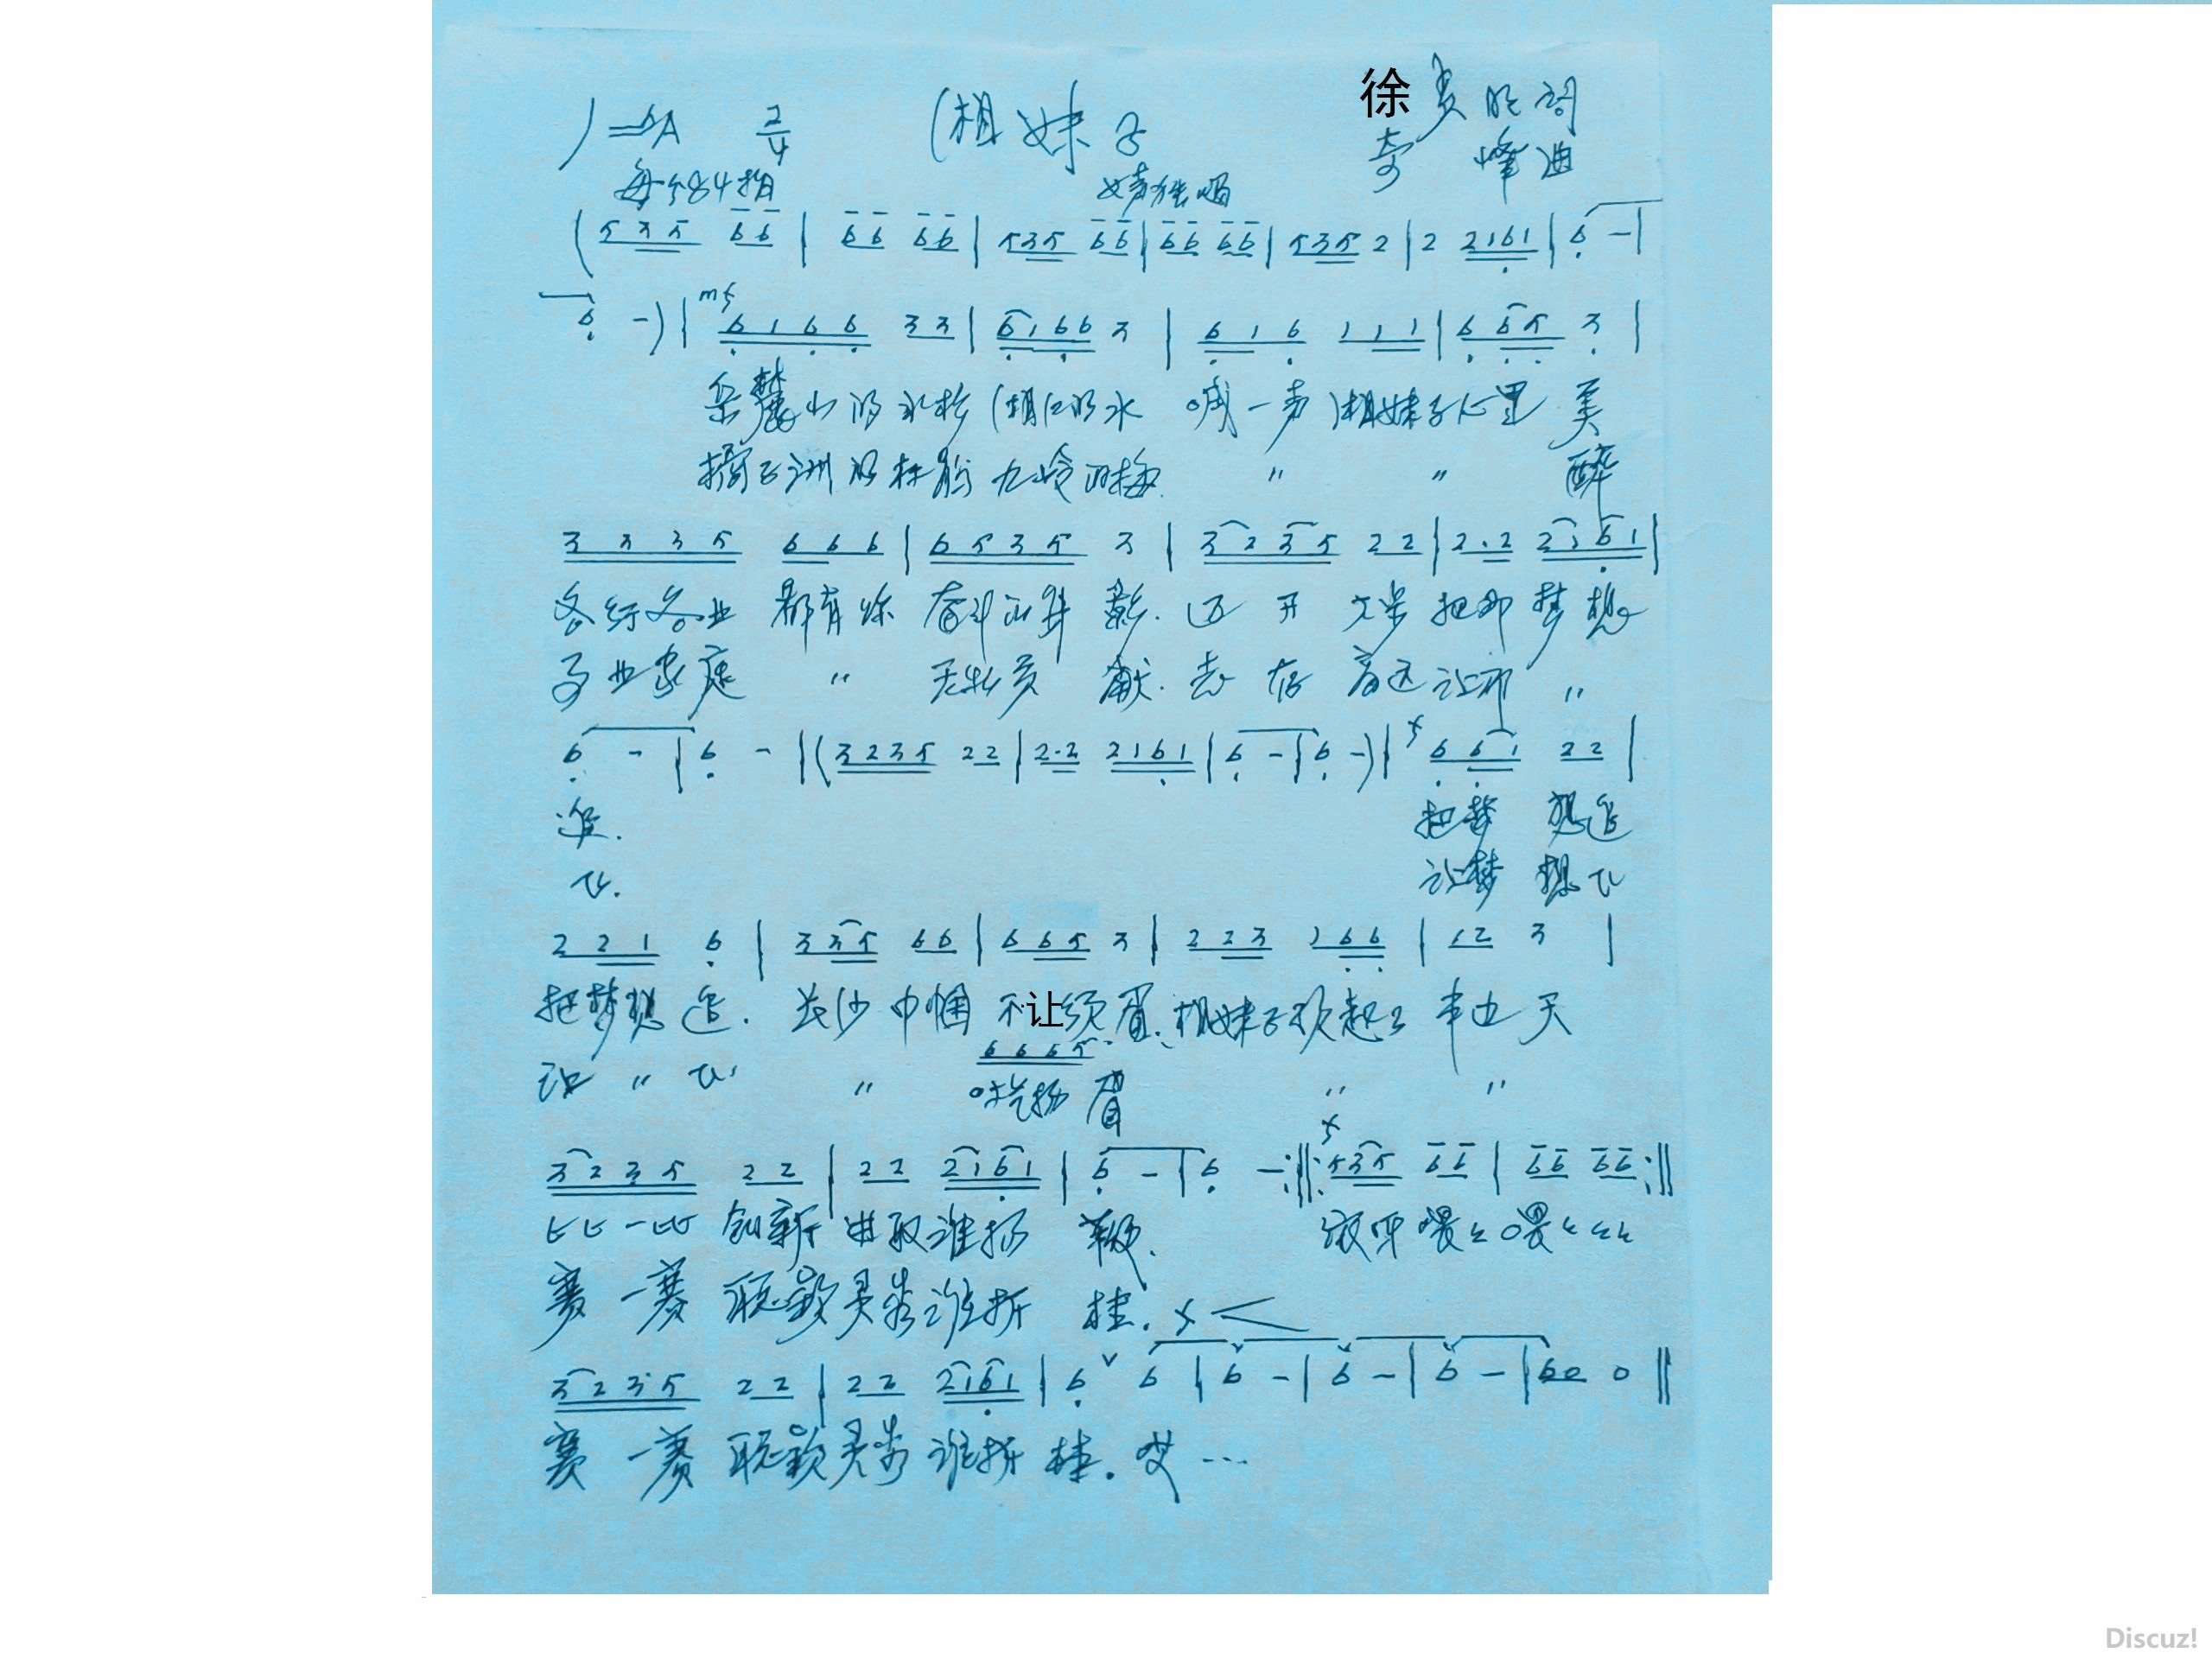 1=bA 2/4 湘妹子 徐 词
每分84拍 女声独唱 奇峰曲
(535 66 | 66 66 | 535 66 | 66 66 | 535 2 | 2 2161 | 6 - |
6 -) | mf 6166 33 | 6166 3 | 616 111 | 665 3 |
岳麓山的 湘江的水 喊一声湘妹子心里美
橘子洲的 的梅 " " 醉
3335 666 | 6535 3 | 3235 22 | 2·2 2161 |
各行各业 都有你 奋斗的 影. 迈开大步 把那梦想
事业家庭 " 无私贡献. 志存高远 让那 "
6 - | 6 - | (3235 22 | 2·2 2161 | 6 - | 6 -) | f 661 22 |
追. 把梦想追
飞. 让梦想飞
221 6 | 335 66 | 665 3 | 223 166 | 12 3 |
把梦想追. 长沙巾帼 不让须眉. 湘妹子顶起了半边天
让 " 飞. " 6665 " "
吐气扬眉
3235 22 | 22 2161 | 6 - | 6 - :‖: f 535 66 | 66 66 :‖
比比一比 创新进取谁扬鞭.
赛一赛 聪颖灵秀谁折桂. f <
3235 22 | 22 2161 | 6 ∨ 6 | 6 - | 6 - | 6 - | 60 0 ‖
赛一赛 聪颖灵秀谁折桂. 哎…
Discuz!